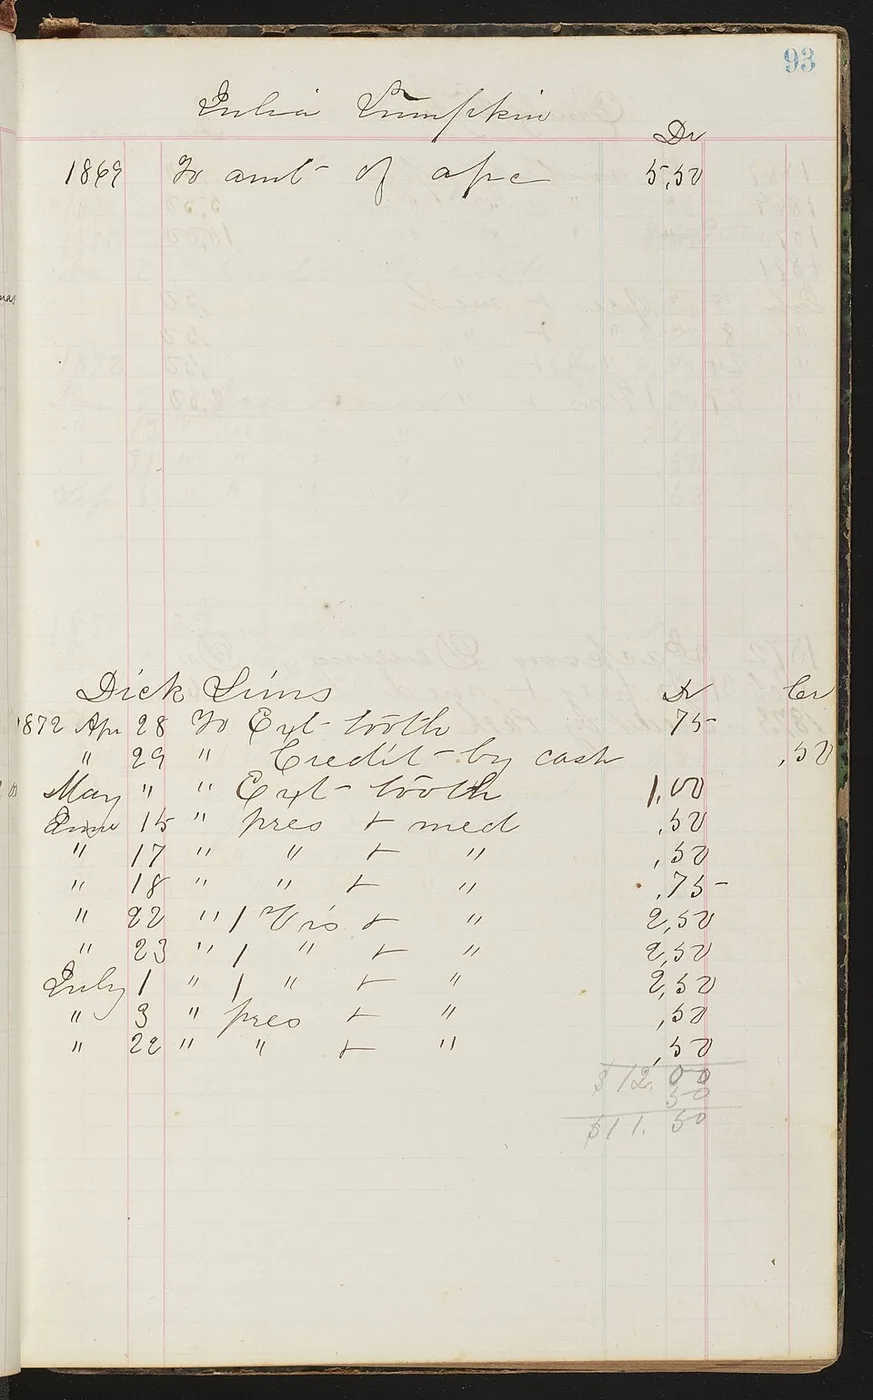 93
Julia Lumpkin
Dr
1869 To amt of a/c 5,50
Dick Sims Dr Cr
1872 Apr 28 To Ext tooth 75
" 29 " Credit by cash ,50
May " " Ext tooth 1,00
June 15 " pres + med ,50
" 17 " " + " ,50
" 18 " " + " .75
" 22 " 1 Vis + " 2,50
" 23 " 1 " + " 2,50
July 1 " 1 " + " 2,50
" 3 " pres + " ,50
" 22 " " + " ,50
$12.00
50
$11.50